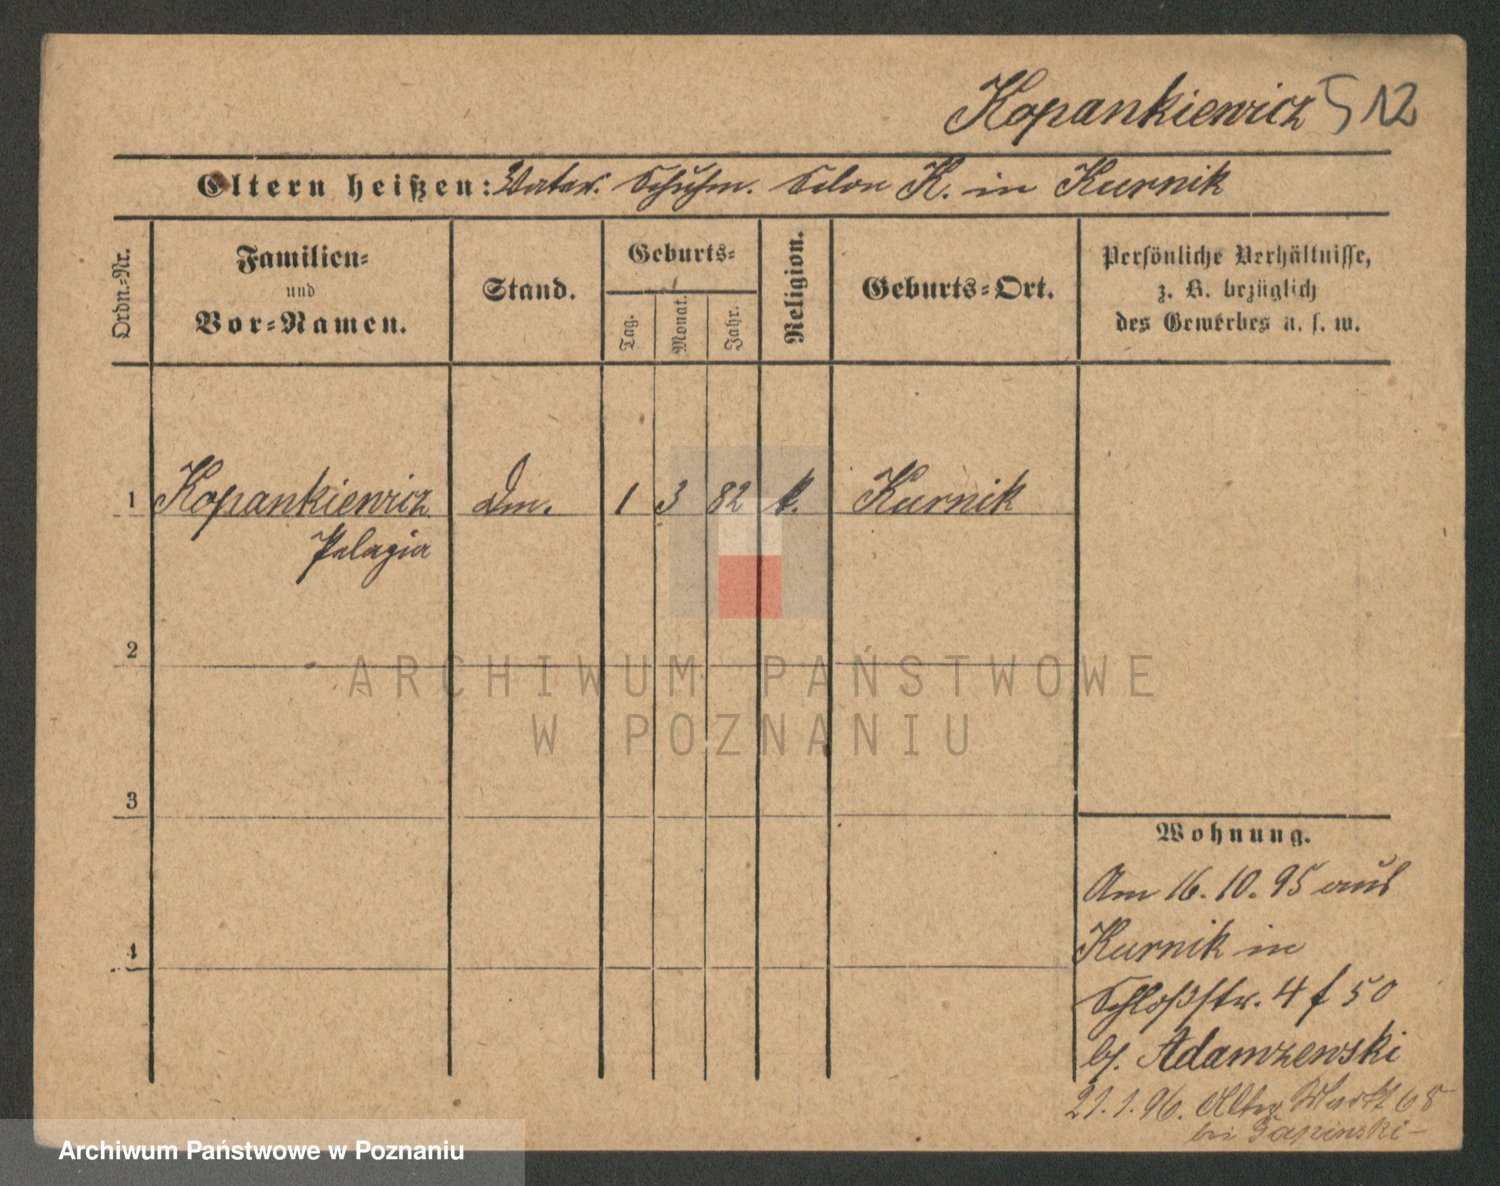 Kopankiewicz 512
Eltern heißen: Vater: Schuhm. K. in Kurnik
Ordn.-Nr.
Familien-
und
Vor-Namen.
Stand.
Geburts-
Tag.
Monat.
Jahr.
Religion.
Geburts-Ort.
Persönliche Verhältnisse,
z. B. bezüglich
des Gewerbes u. s. w.
1 Kopankiewicz 1 3 82 k. Kurnik
Pelagia
2
3
4
Wohnung.
Am 16. 10. 95 aus
Kurnik in
Schloßstr. 4 f 50
bj. Adamzewski
21. 1. 96. Alter Markt 68
bei
ARCHIWUM PAŃSTWOWE
W POZNANIU
Archiwum Państwowe w Poznaniu